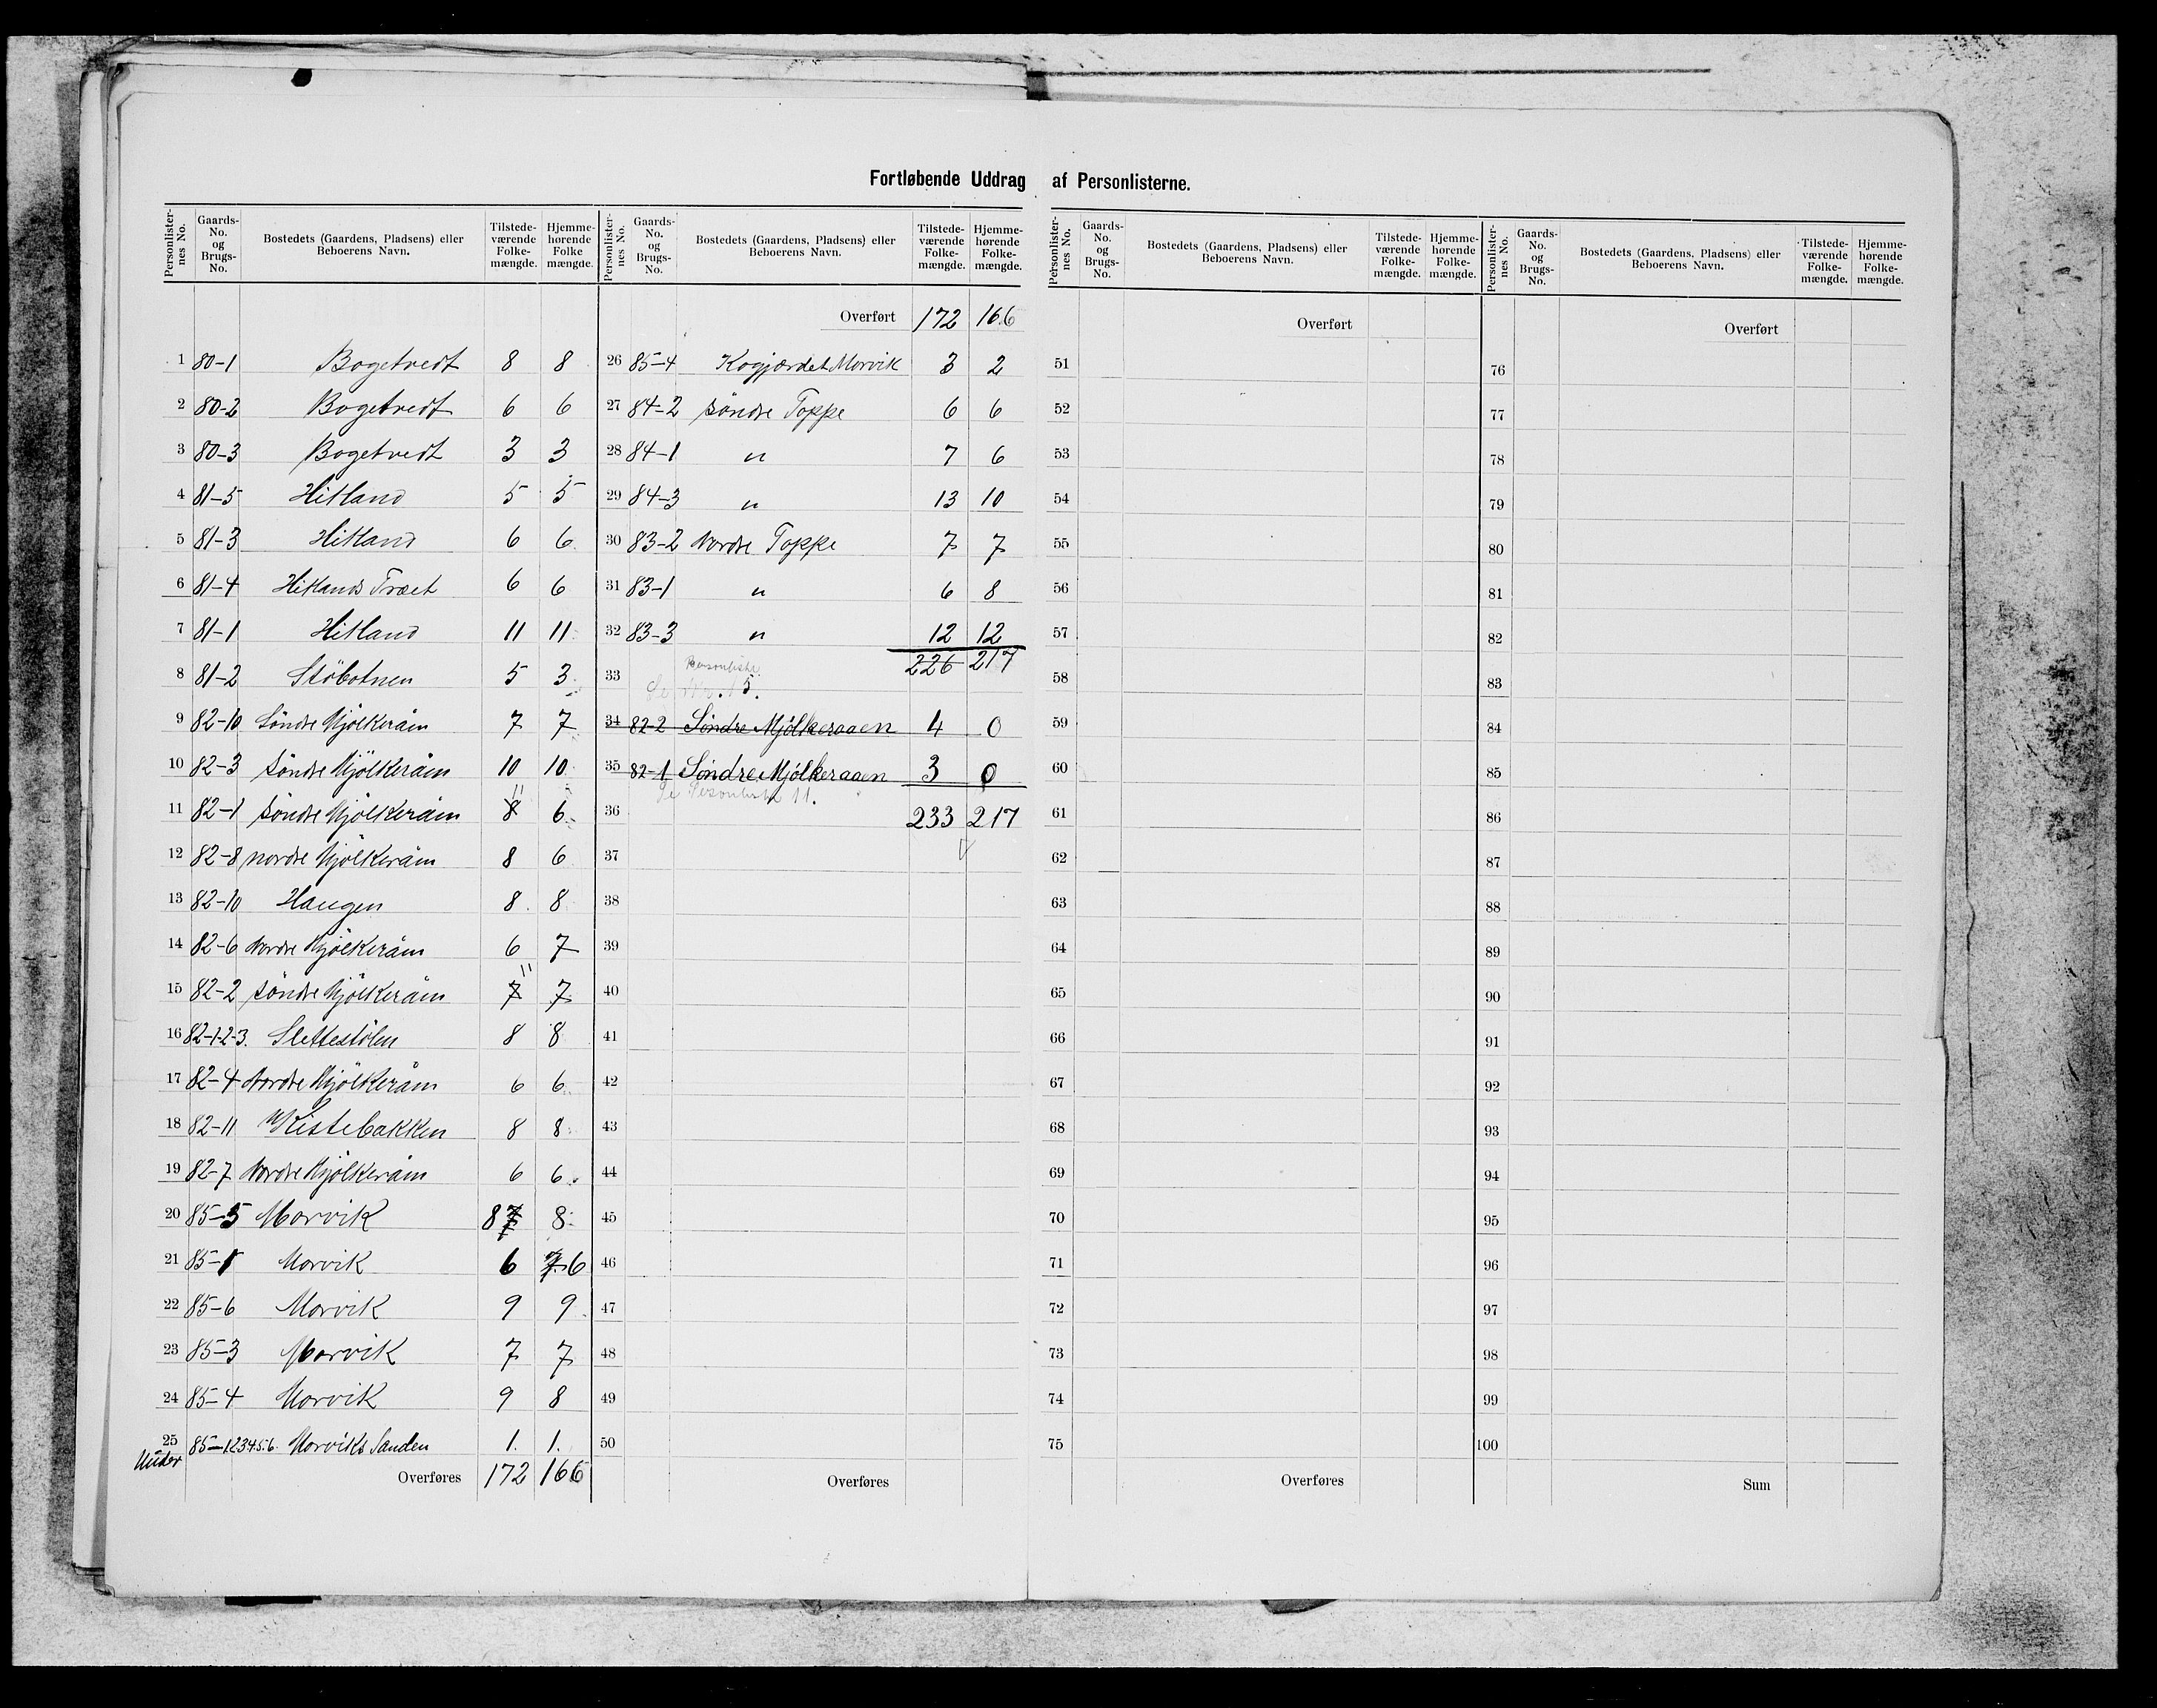 Fortløbende Uddrag af Personlisterne.
Personlisternes No. | Gaards-No. og Brugs-No. | Bostedets (Gaardens, Pladsens) eller Beboerens Navn. | Tilstedeværende Folkemængde. | Hjemmehørende Folkemængde.
1 80-1 Bogetvedt 8 8
2 80-2 Bogetvedt 6 6
3 80-3 Bogetvedt 3 3
4 81-5 Hitland 5 5
5 81-3 Hitland 6 6
6 81-4 Hitlands Træet 6 6
7 81-1 Hitland 11 11
8 81-2 Stöbotnen 5 3
9 82-10 Söndre Mjölkeråen 7 7
10 82-3 Söndre Mjölkeråen 10 10
11 82-1 Söndre Mjölkeråen 8 11 6
12 82-8 Nordre Mjölkeråen 8 6
13 82-10 Haugen 8 8
14 82-6 Nordre Mjölkeråen 6 7
15 82-2 Söndre Mjölkeråen 7 11 7
16 82-1-2-3. Slettestölen 8 8
17 82-4 Nordre Mjölkeråen 6 6
18 82-11 Kistebakken 8 8
19 82-7 Nordre Mjölkeråen 6 6
20 85-5 Morvik 8 7 8
21 85-1 Morvik 6 7 6
22 85-6 Morvik 9 9
23 85-3 Morvik 7 7
24 85-4 Morvik 9 8
25 Under 85-1.2.3.4.5.6. Morviks Sanden 1. 1.
Overføres 172 166
Overført 172 166
26 85-4 Kogjærdet Morvik 3 2
27 84-2 Söndre Toppe 6 6
28 84-1 " 7 6
29 84-3 " 13 10
30 83-2 Nordre Toppe 7 7
31 83-1 " 6 8
32 83-3 " 12 12
226 217
33 Personliste
Se No. 15.
34 82-2 Søndre Mjølkeraaen 4 0
35 82-1 Søndre Mjølkeraaen 3 0
Se Personliste 11.
36 233 217
37
38
39
40
41
42
43
44
45
46
47
48
49
50
Overføres
Overført
51
52
53
54
55
56
57
58
59
60
61
62
63
64
65
66
67
68
69
70
71
72
73
74
75
Overføres
Overført
76
77
78
79
80
81
82
83
84
85
86
87
88
89
90
91
92
93
94
95
96
97
98
99
100
Sum